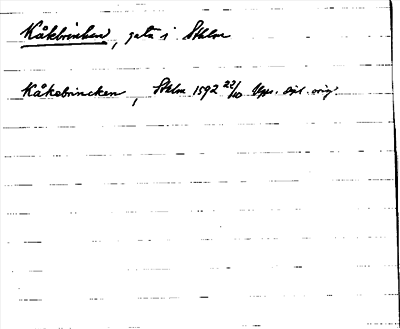 Kåkbrinken, gata i Sthlm
Kåkebrincken, Sthlm 1592 22/10 Upps. dipl. orig.